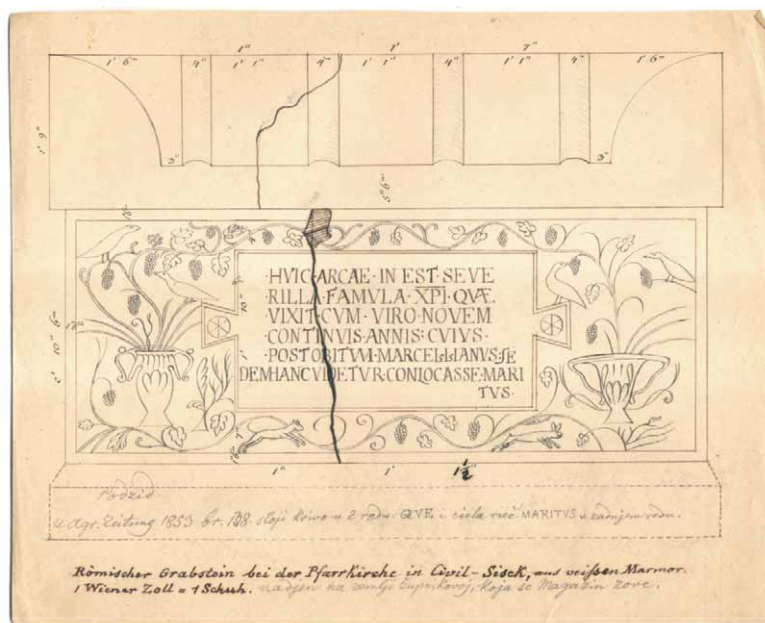 1" 1' 7"
1' 6" 4" 1' 1" 4" 1' 1" 4" 1' 1" 4" 1' 6"
1' 9"
3" 3"
·HVIC·ARCAE·IN EST·SEVE
·RILLA·FAMVLA·XPI·QVÆ
VIXIT·CVM·VIRO·NOVEM
·CONTINVIS·ANNIS: CVIVS·
·POST OBITVM·MARCELLIANVS·SE
DEM HANC VIDETVR·CONLOCASSE·MARI
TVS·
10"
1'
2' 10" 6"'
1" 1' 1½
Podzid
U Agr. Zeitung 1853 br. 138. stoji krivo u 2 redu: QVE i ciela rieč MARITVS u zadnjem redu.
Römischer Grabstein bei der Pfarrkirche in Civil-Sisek, aus weißen Marmor.
1 Wiener Zoll = 1 Schuh. nadjen na zemlji župnikovoj, koja se Magazin zove.